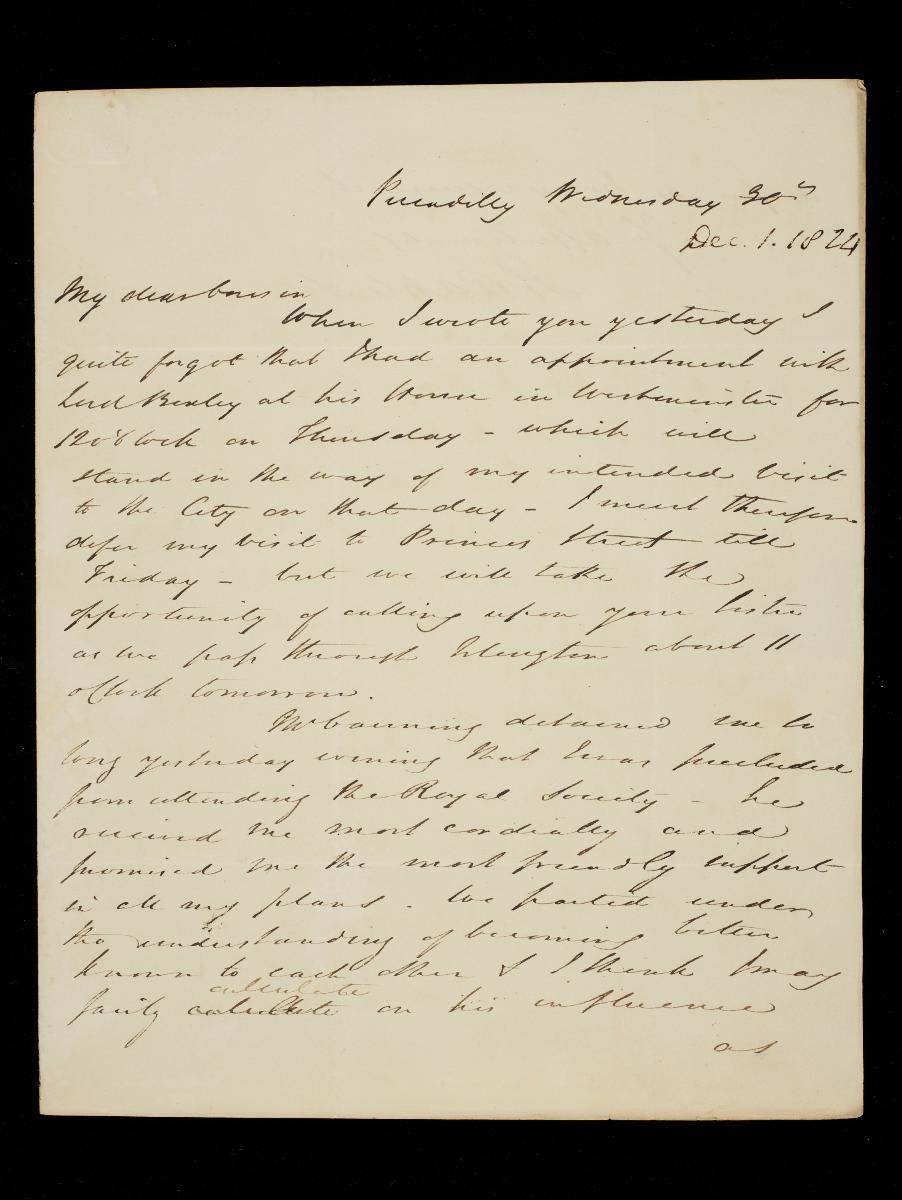 Piccadilly Wednesday 30th
Dec. 1. 1824
My dear Cousin
When I wrote you yesterday I
quite forgot that I had an appointment with
Lord Bexley at his House in Westminster for
12 o'Clock on Thursday - which will
stand in the way of my intended Visit
to the City on that day - I must therefore
defer my Visit to Princes Street till
Friday - but we will take the
opportunity of calling upon your Sister
as we pass through Islington about 11
oClock tomorrow.
Mr Canning detained me so
long yesterday evening that I was precluded
from attending the Royal Society - he
received me most cordially and
promised me the most friendly support
in all my plans - We parted under
the understanding of becoming better
known to each other & I think I may
calculate
fairly calculate on his influence
as